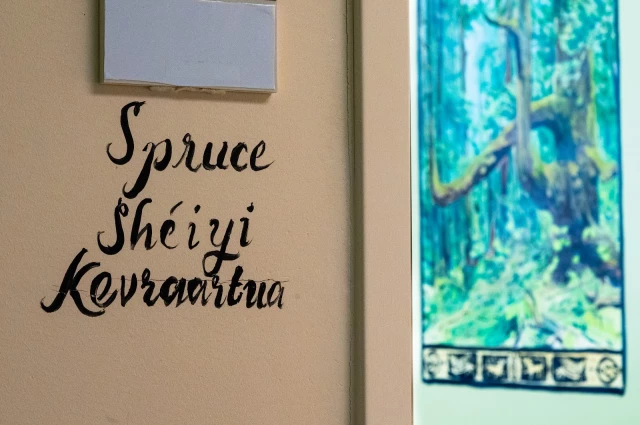 Spruce
Shéiyi
Kevraartua